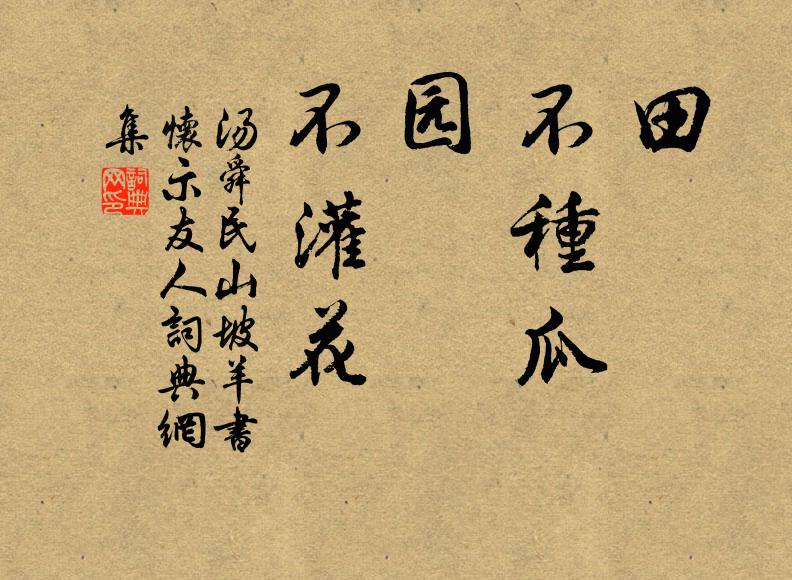 田
不種瓜
园
不灌花
汤舜民山坡羊書
懷示友人詞典網
集
詞典
网印